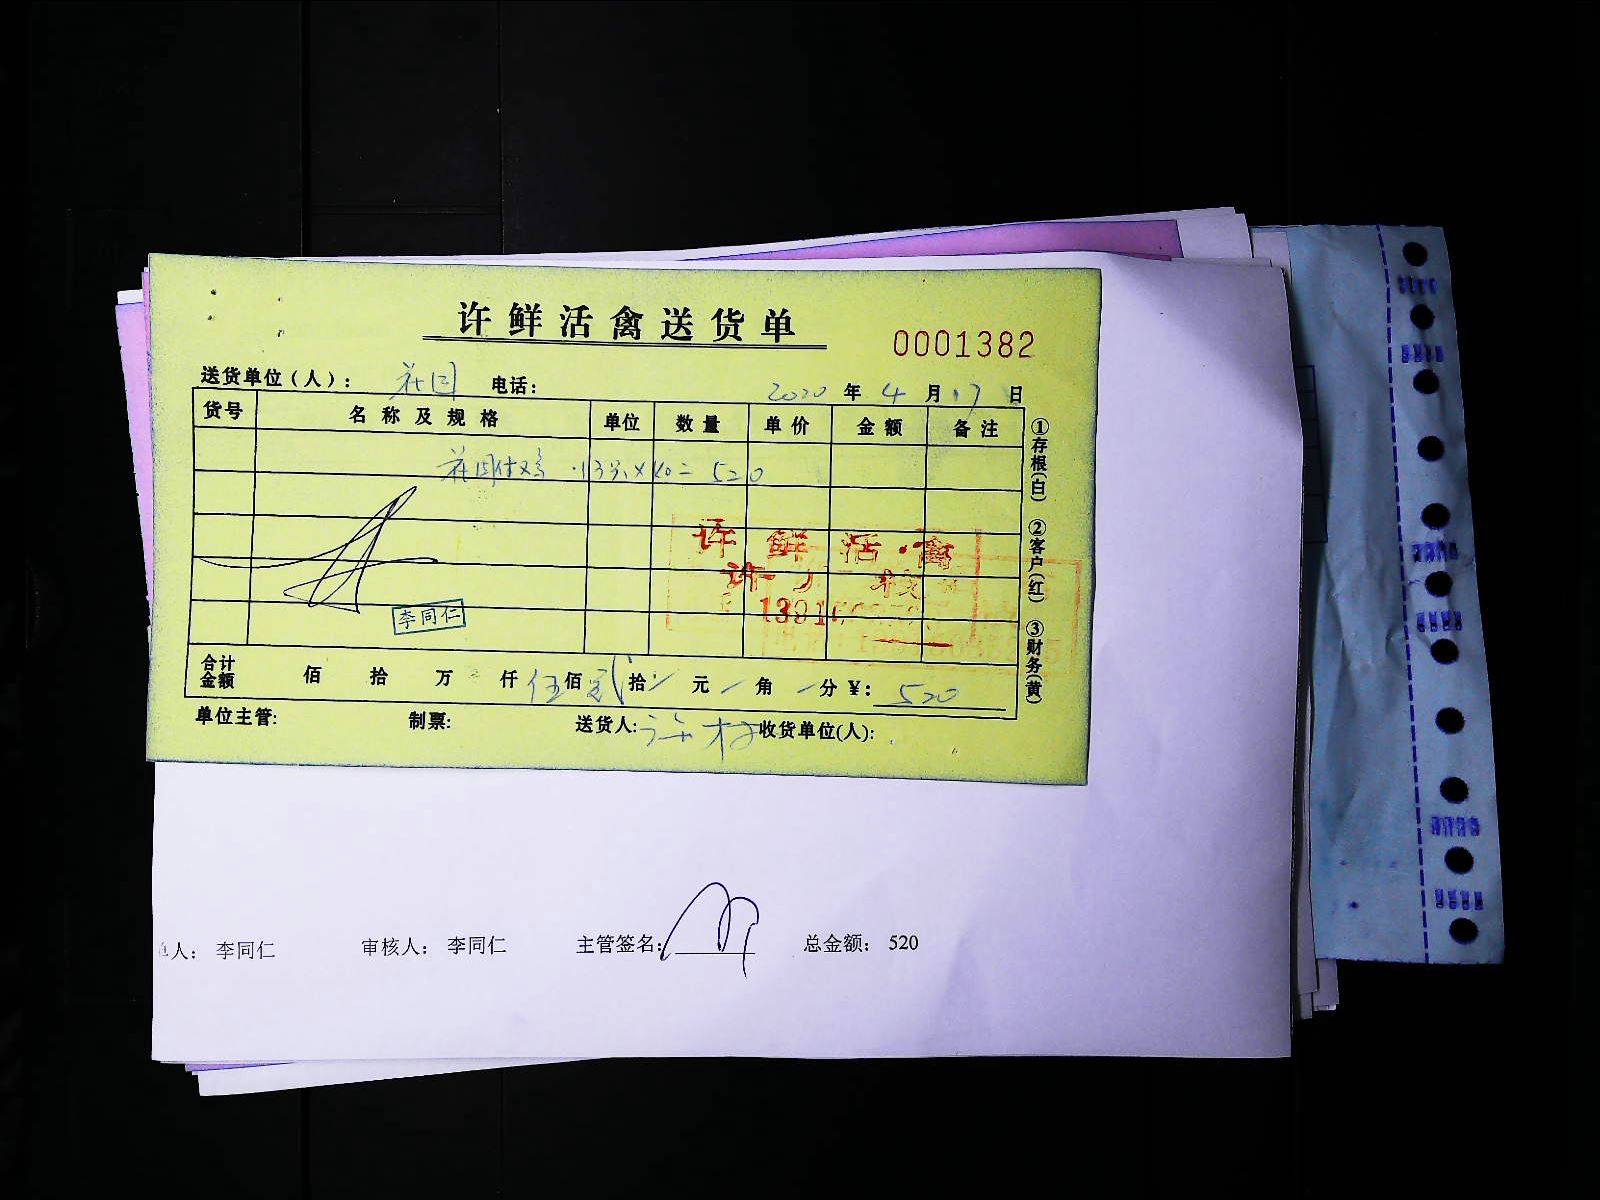 许鲜活禽送货单
0001382
送货单位(人): 花园 电话: 2020 年 4 月 17 日
货号 名称及规格 单位 数量 单价 金额 备注
13只×40=520
许鲜活禽
李同仁
合计金额 佰 拾 万 仟 伍佰 贰拾 元 角 分 ¥: 520
单位主管: 制票: 送货人: 许 收货单位(人):
①存根(白) ②客户(红) ③财务(黄)
人: 李同仁 审核人: 李同仁 主管签名: 总金额: 520